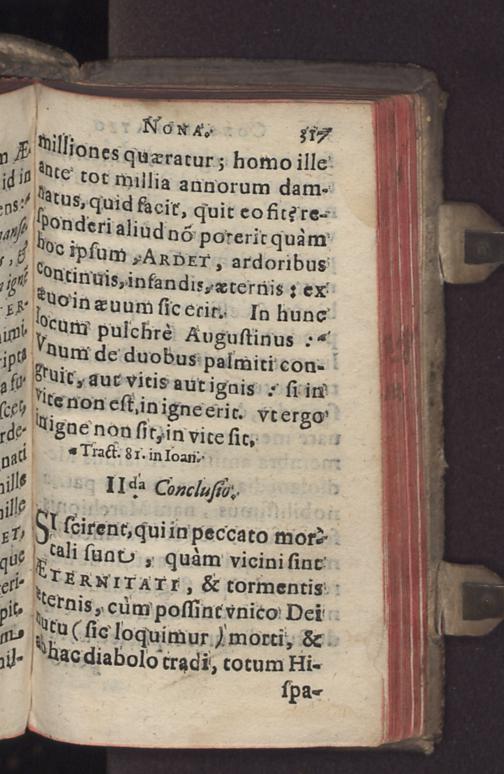 NONA. 317
milliones quæratur; homo ille
ante tot millia annorum dam-
natus, quid facit, quit eo fit? re-
sponderi aliud nõ poterit quàm
hoc ipsum, ARDET, ardoribus
continuis, infandis, æternis; ex
æuo in æuum sic erit. In hunc
locum pulchrè Augustinus :
Vnum de duobus palmiti con-
gruit, aut vitis aut ignis : si in
vite non est, in igne erit. vt ergo
in igne non sit, in vite sit.
a Tract. 81. in Ioan.
IIda Conclusio.
SI scirent, qui in peccato mor-
tali sunt, quàm vicini sint
ÆTERNITATI, & tormentis
æternis, cùm possint vnico Dei
nutu (sic loquimur) morti, &
ab hac diabolo tradi, totum Hi-
spa-